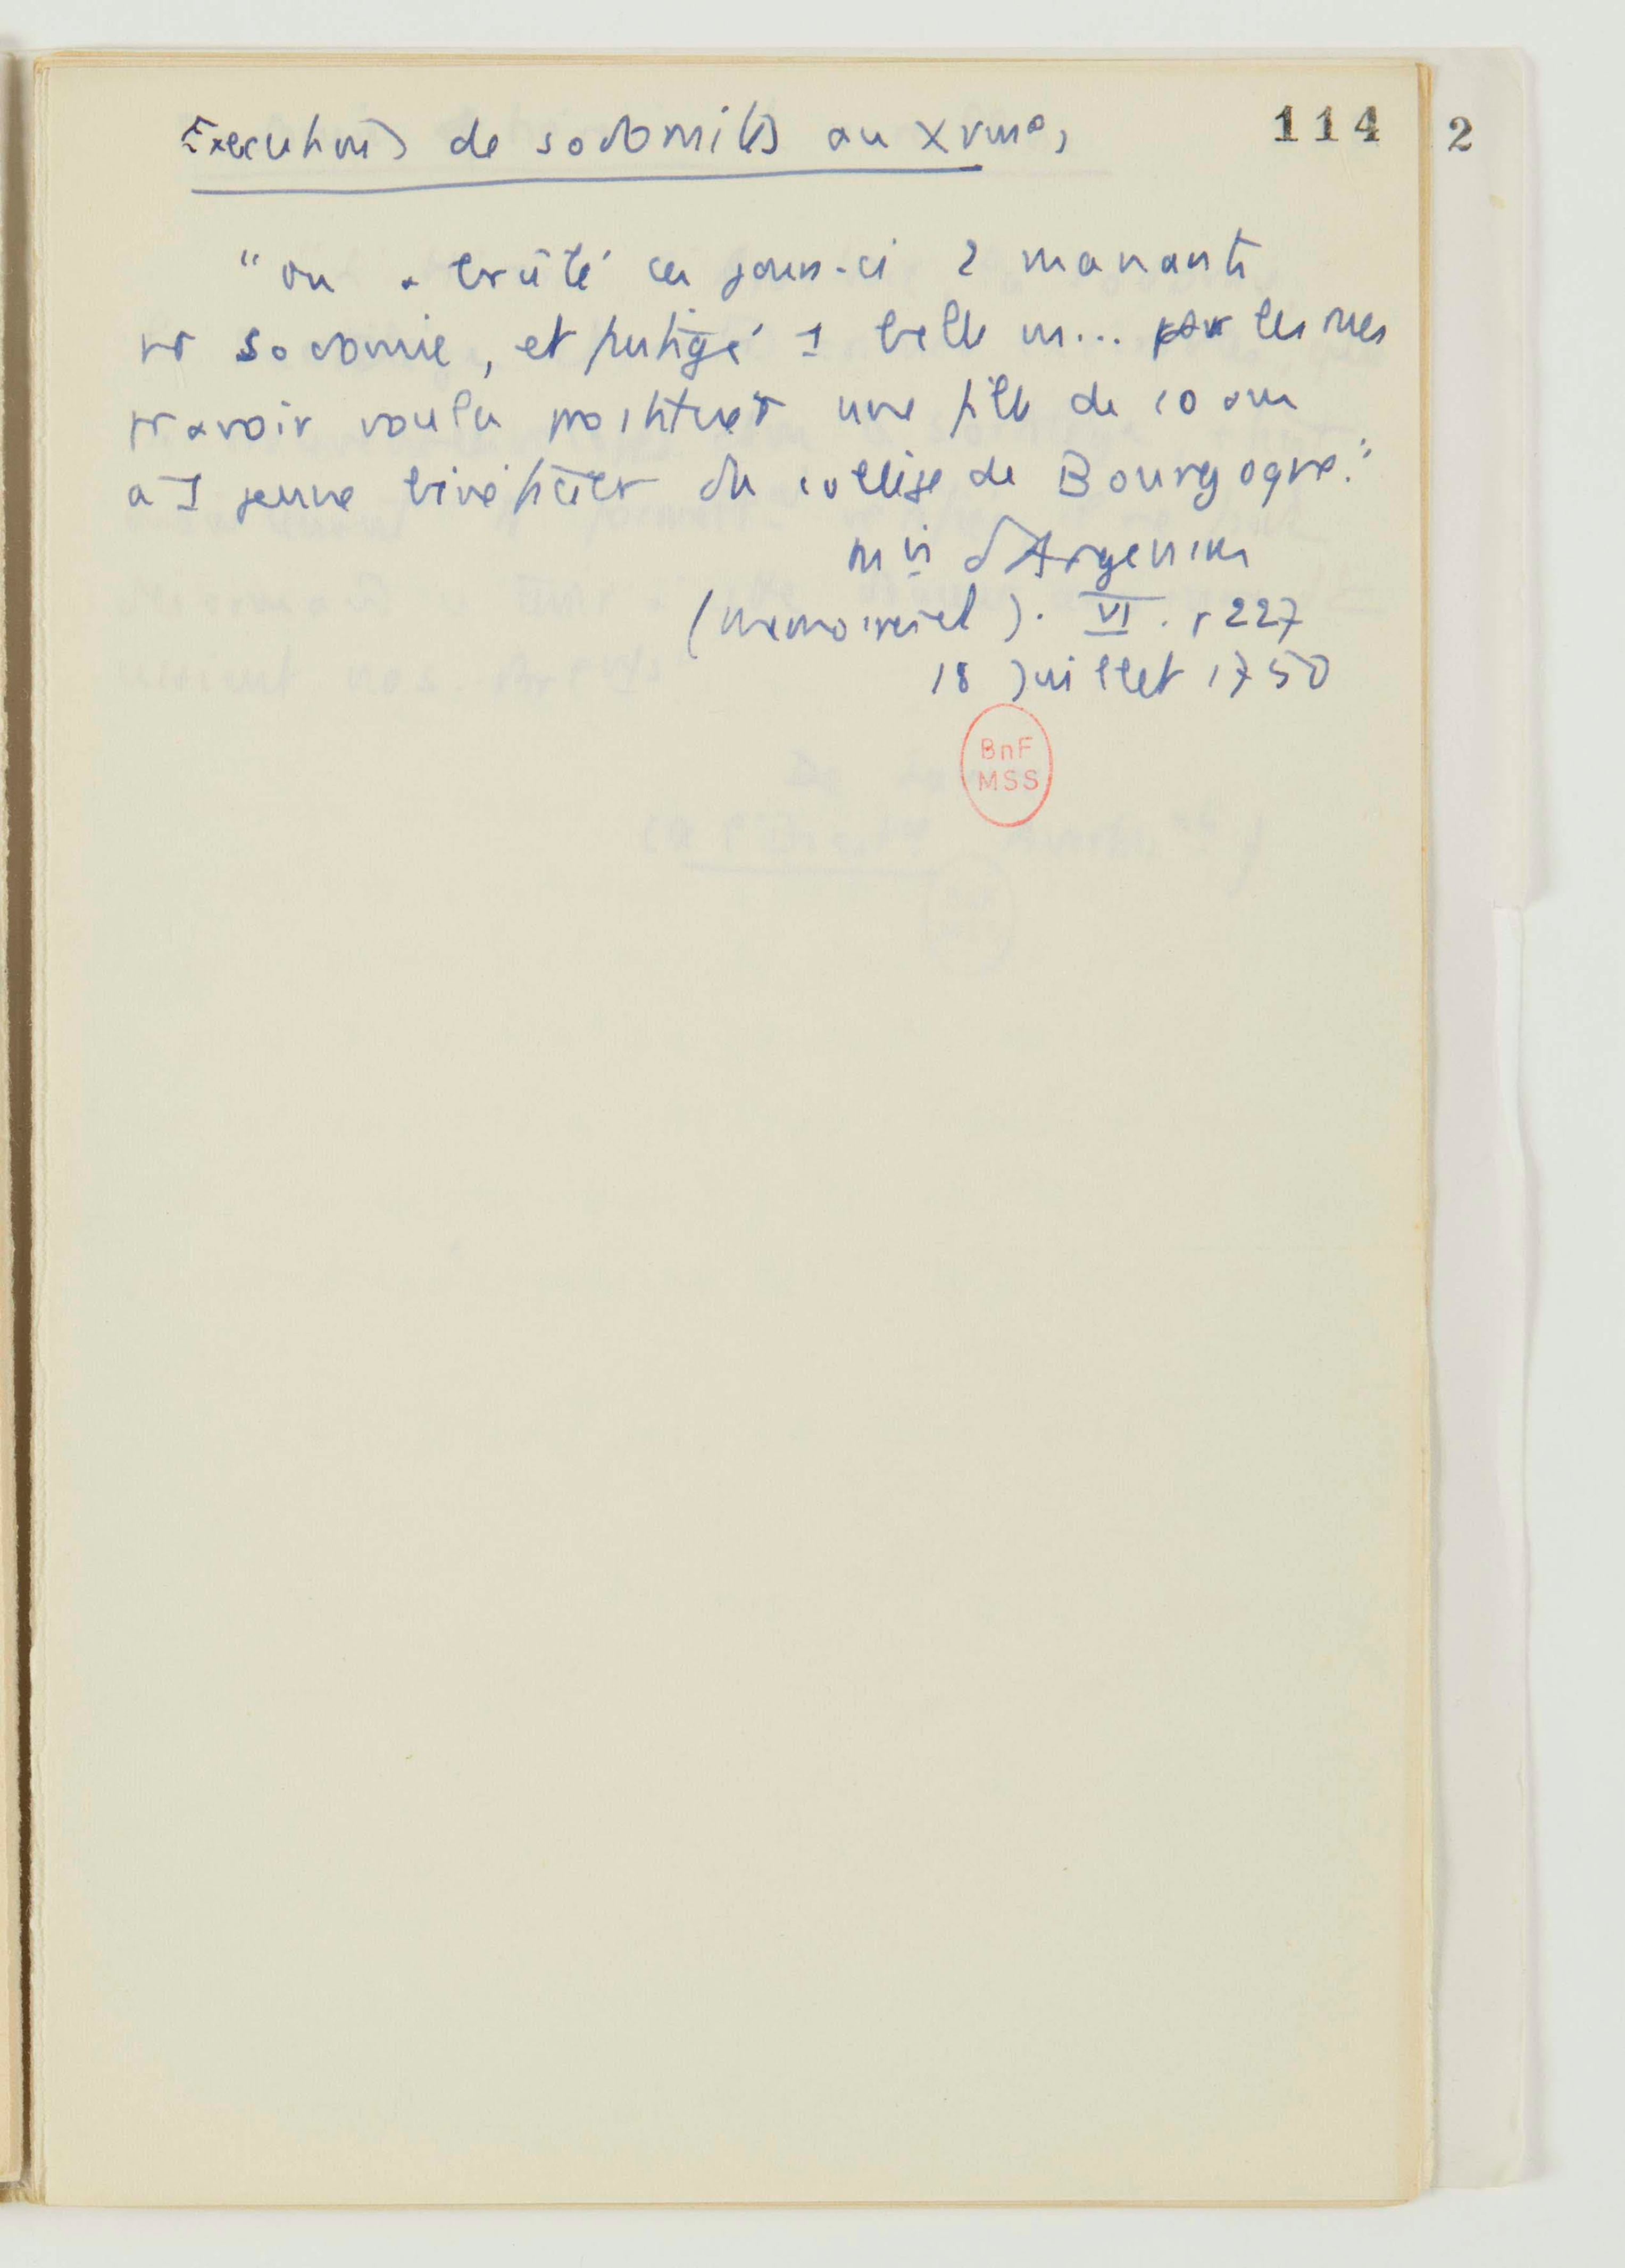 Executions de sodomites au XVIIIe s
114
2
"on a brûlé ces jours-ci 2 manants
pr sodomie, et fustigé 1 belle m... par les rues
pr avoir voulu prostituer une fille de 10 ans
à 1 jeune bénéficier du collège de Bourgogne."
Mis d'Argenson
(Memoires et ). VI. p 227
18 Juillet 1750
BnF
MSS